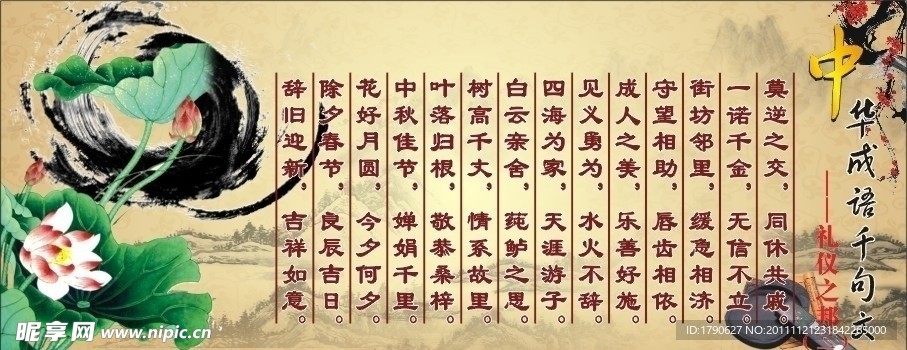 中华成语千句文
——礼仪之邦
莫逆之交，同休共戚。
一诺千金，无信不立。
街坊邻里，缓急相济。
守望相助，唇齿相依。
成人之美，乐善好施。
见义勇为，水火不辞。
四海为家，天涯游子。
白云亲舍，莼鲈之思。
树高千丈，情系故里。
叶落归根，敬恭桑梓。
中秋佳节，婵娟千里。
花好月圆，今夕何夕。
除夕春节，良辰吉日。
辞旧迎新，吉祥如意。
昵享网 www.nipic.cn
ID:1790627 NO:20111121231842265000